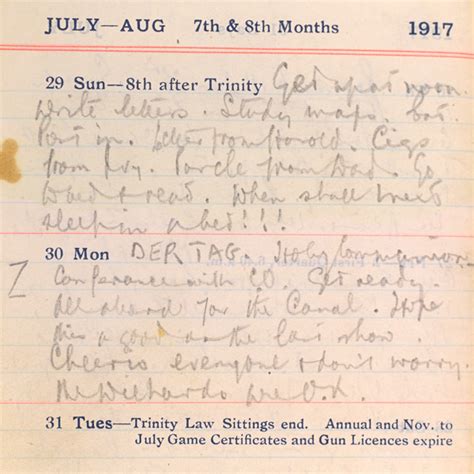 JULY—AUG 7th & 8th Months 1917
29 Sun—8th after Trinity Get up at noon.
Write letters. Study maps.
in. Letter from Harold. Cigs
from Ivy. Parcel from Dad. Go
to bed & read. When shall I next
sleep in a bed!!!
30 Mon DER TAG. Holy Communion
Conference with CO. Get ready.
All aboard for the Canal. Hope
this is good as the last show.
Cheerio everyone & don't worry.
The Diehards are O.K.
31 Tues—Trinity Law Sittings end. Annual and Nov. to
July Game Certificates and Gun Licences expire